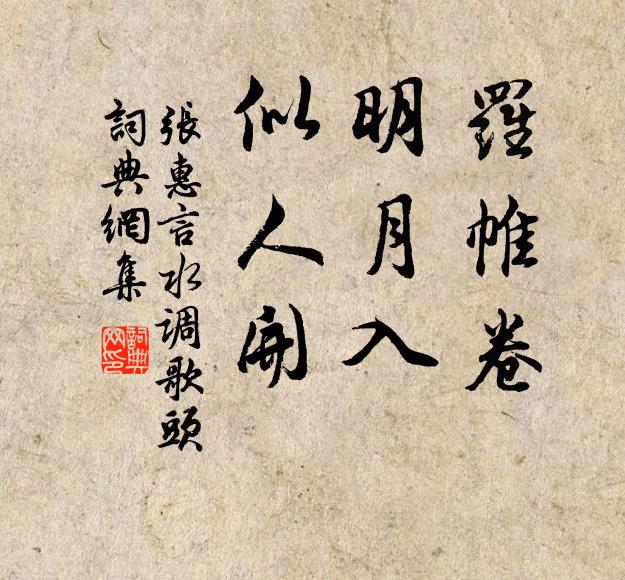 羅帷卷
明月入
似人開
張惠言水调歌頭
詞典網集
詞典
网印